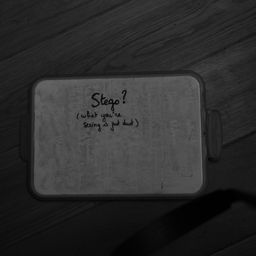 Stego?
(what you're
seeing is just dust)